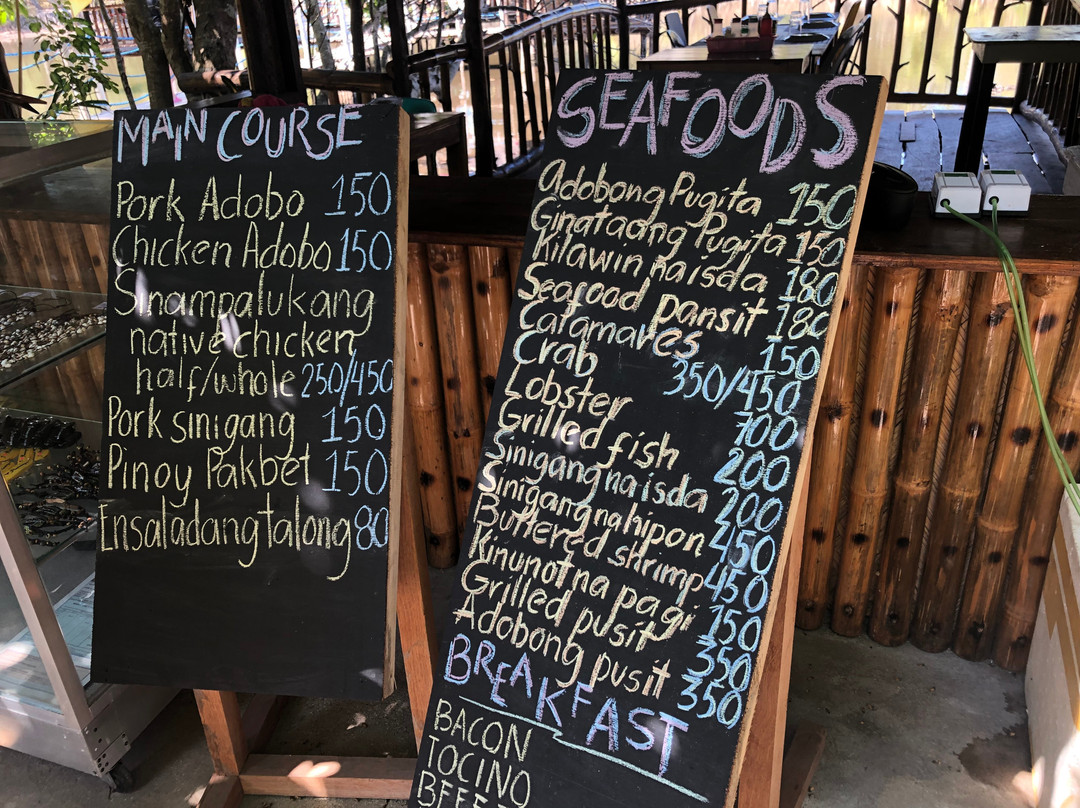 MAIN COURSE
Pork Adobo 150
Chicken Adobo 150
Sinampalukang
native chicken
half/whole 250/450
Pork sinigang 150
Pinoy Pakbet 150
Ensaladang talong 80
SEAFOODS
Adobong Pugita 150
Ginataang Pugita 150
Kilawin na isda 180
Seafood pansit 180
Calamares 150
Crab 350/450
Lobster 700
Grilled fish 200
Sinigang na isda 200
Sinigang na hipon 450
Buttered shrimp 450
Kinunot na pagi 150
Grilled pusit 350
Adobong pusit 350
BREAKFAST
BACON
TOCINO